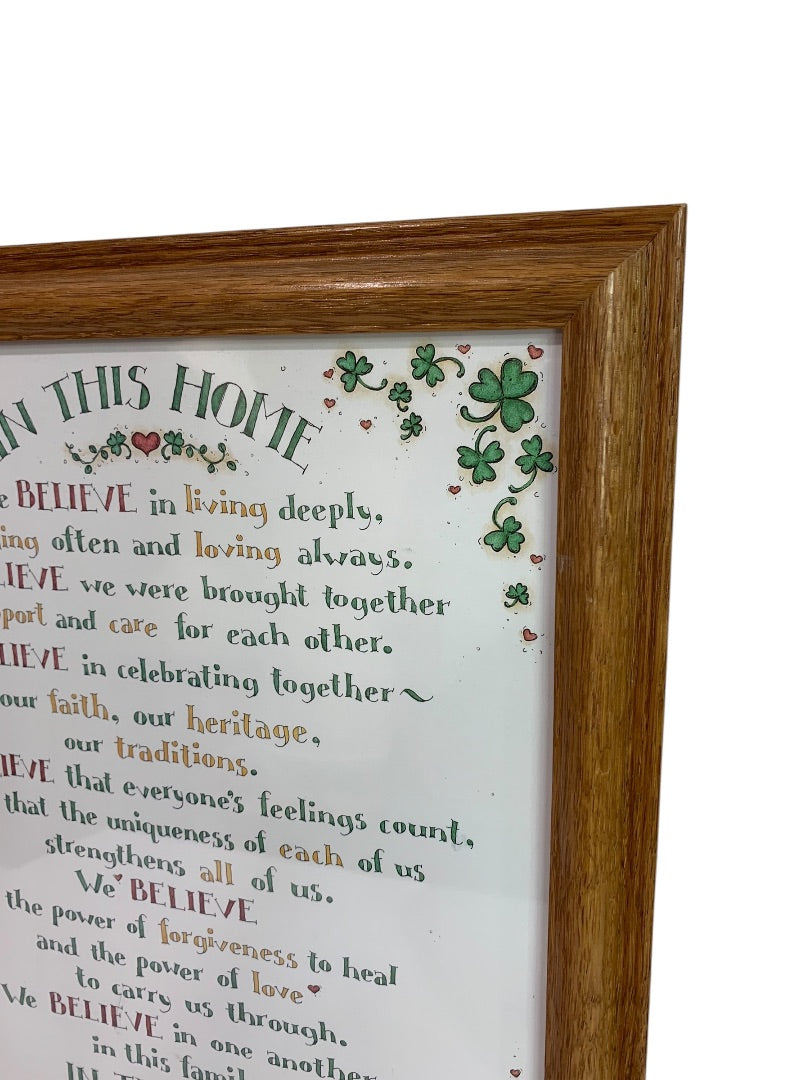 IN THIS HOME
BELIEVE in living deeply,
often and loving always.
we were brought together
and care for each other.
in celebrating together~
our faith, our heritage,
our traditions.
that everyone's feelings count,
that the uniqueness of each of us
strengthens all of us.
We BELIEVE
the power of forgiveness to heal
and the power of love
to carry us through.
We BELIEVE in one another
in this